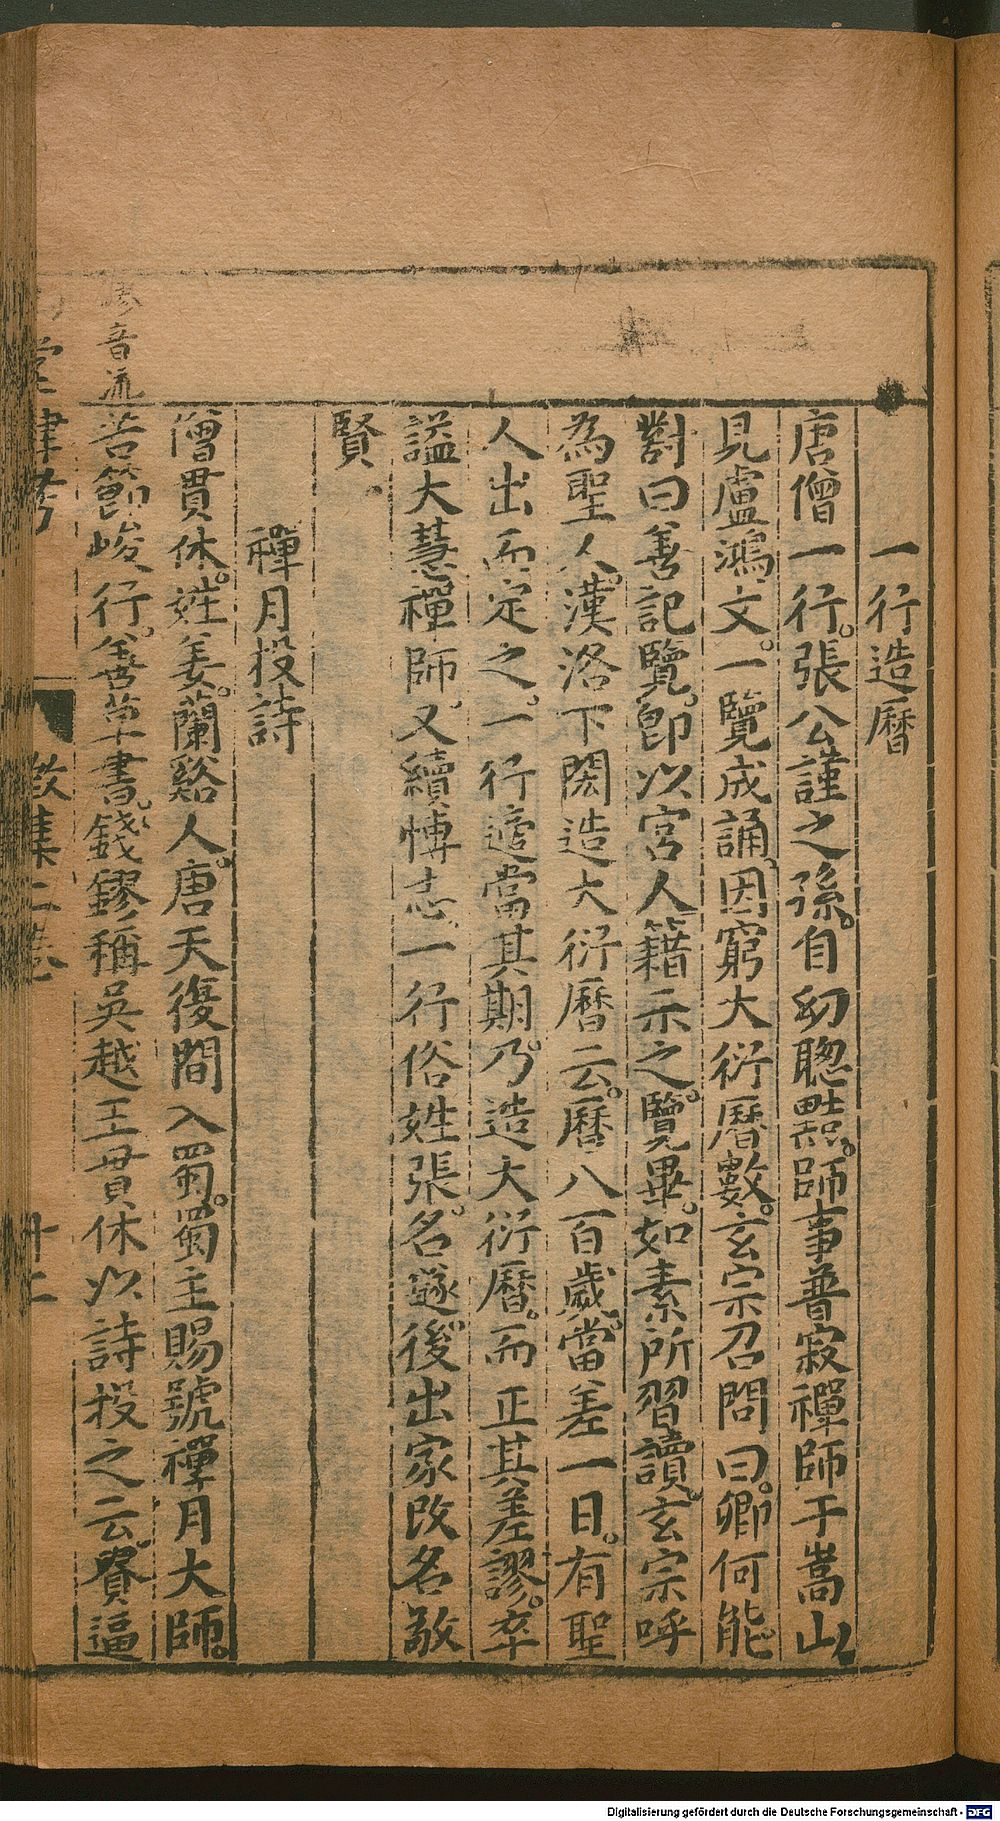 一行造曆
唐僧一行。張公謹之孫。自幼聰黠。師事普寂禪師于嵩山
見盧鴻文。一覽成誦。因窮大衍曆數。玄宗召問曰。卿何能。
對曰善記覽。卽以宮人籍示之。覽畢。如素所習讀。玄宗呼
為聖人。漢洛下閎造大衍曆云。曆八百歲。當差一日。有聖
人出而定之。一行適當其期。乃造大衍曆。而正其差謬。卒
謚大慧禪師。又續博志。一行俗姓張。名遂。後出家改名敬
賢。
禪月投詩
僧貫休。姓姜。蘭谿人。唐天復間入蜀。蜀主賜號禪月大師。
苦節峻行。善草書。錢鏐稱吳越王貫休以詩投之云。賚逼
音流
故集二卷
十二
Digitalisierung gefördert durch die Deutsche Forschungsgemeinschaft - DFG